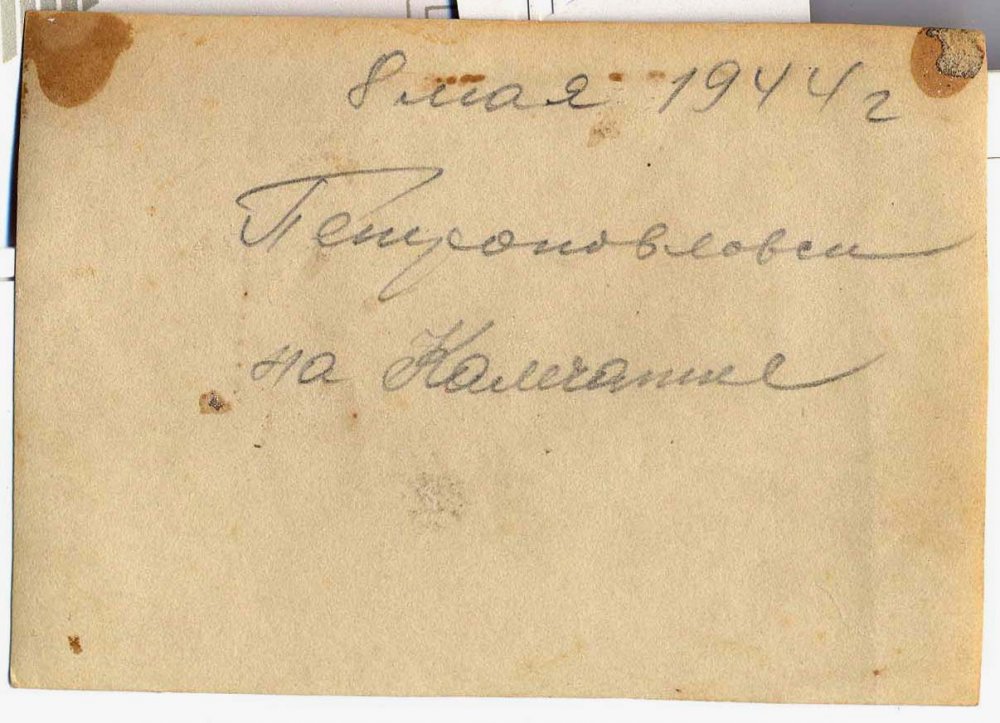 8 мая 1944 г
Петроповловск
на Камчатке